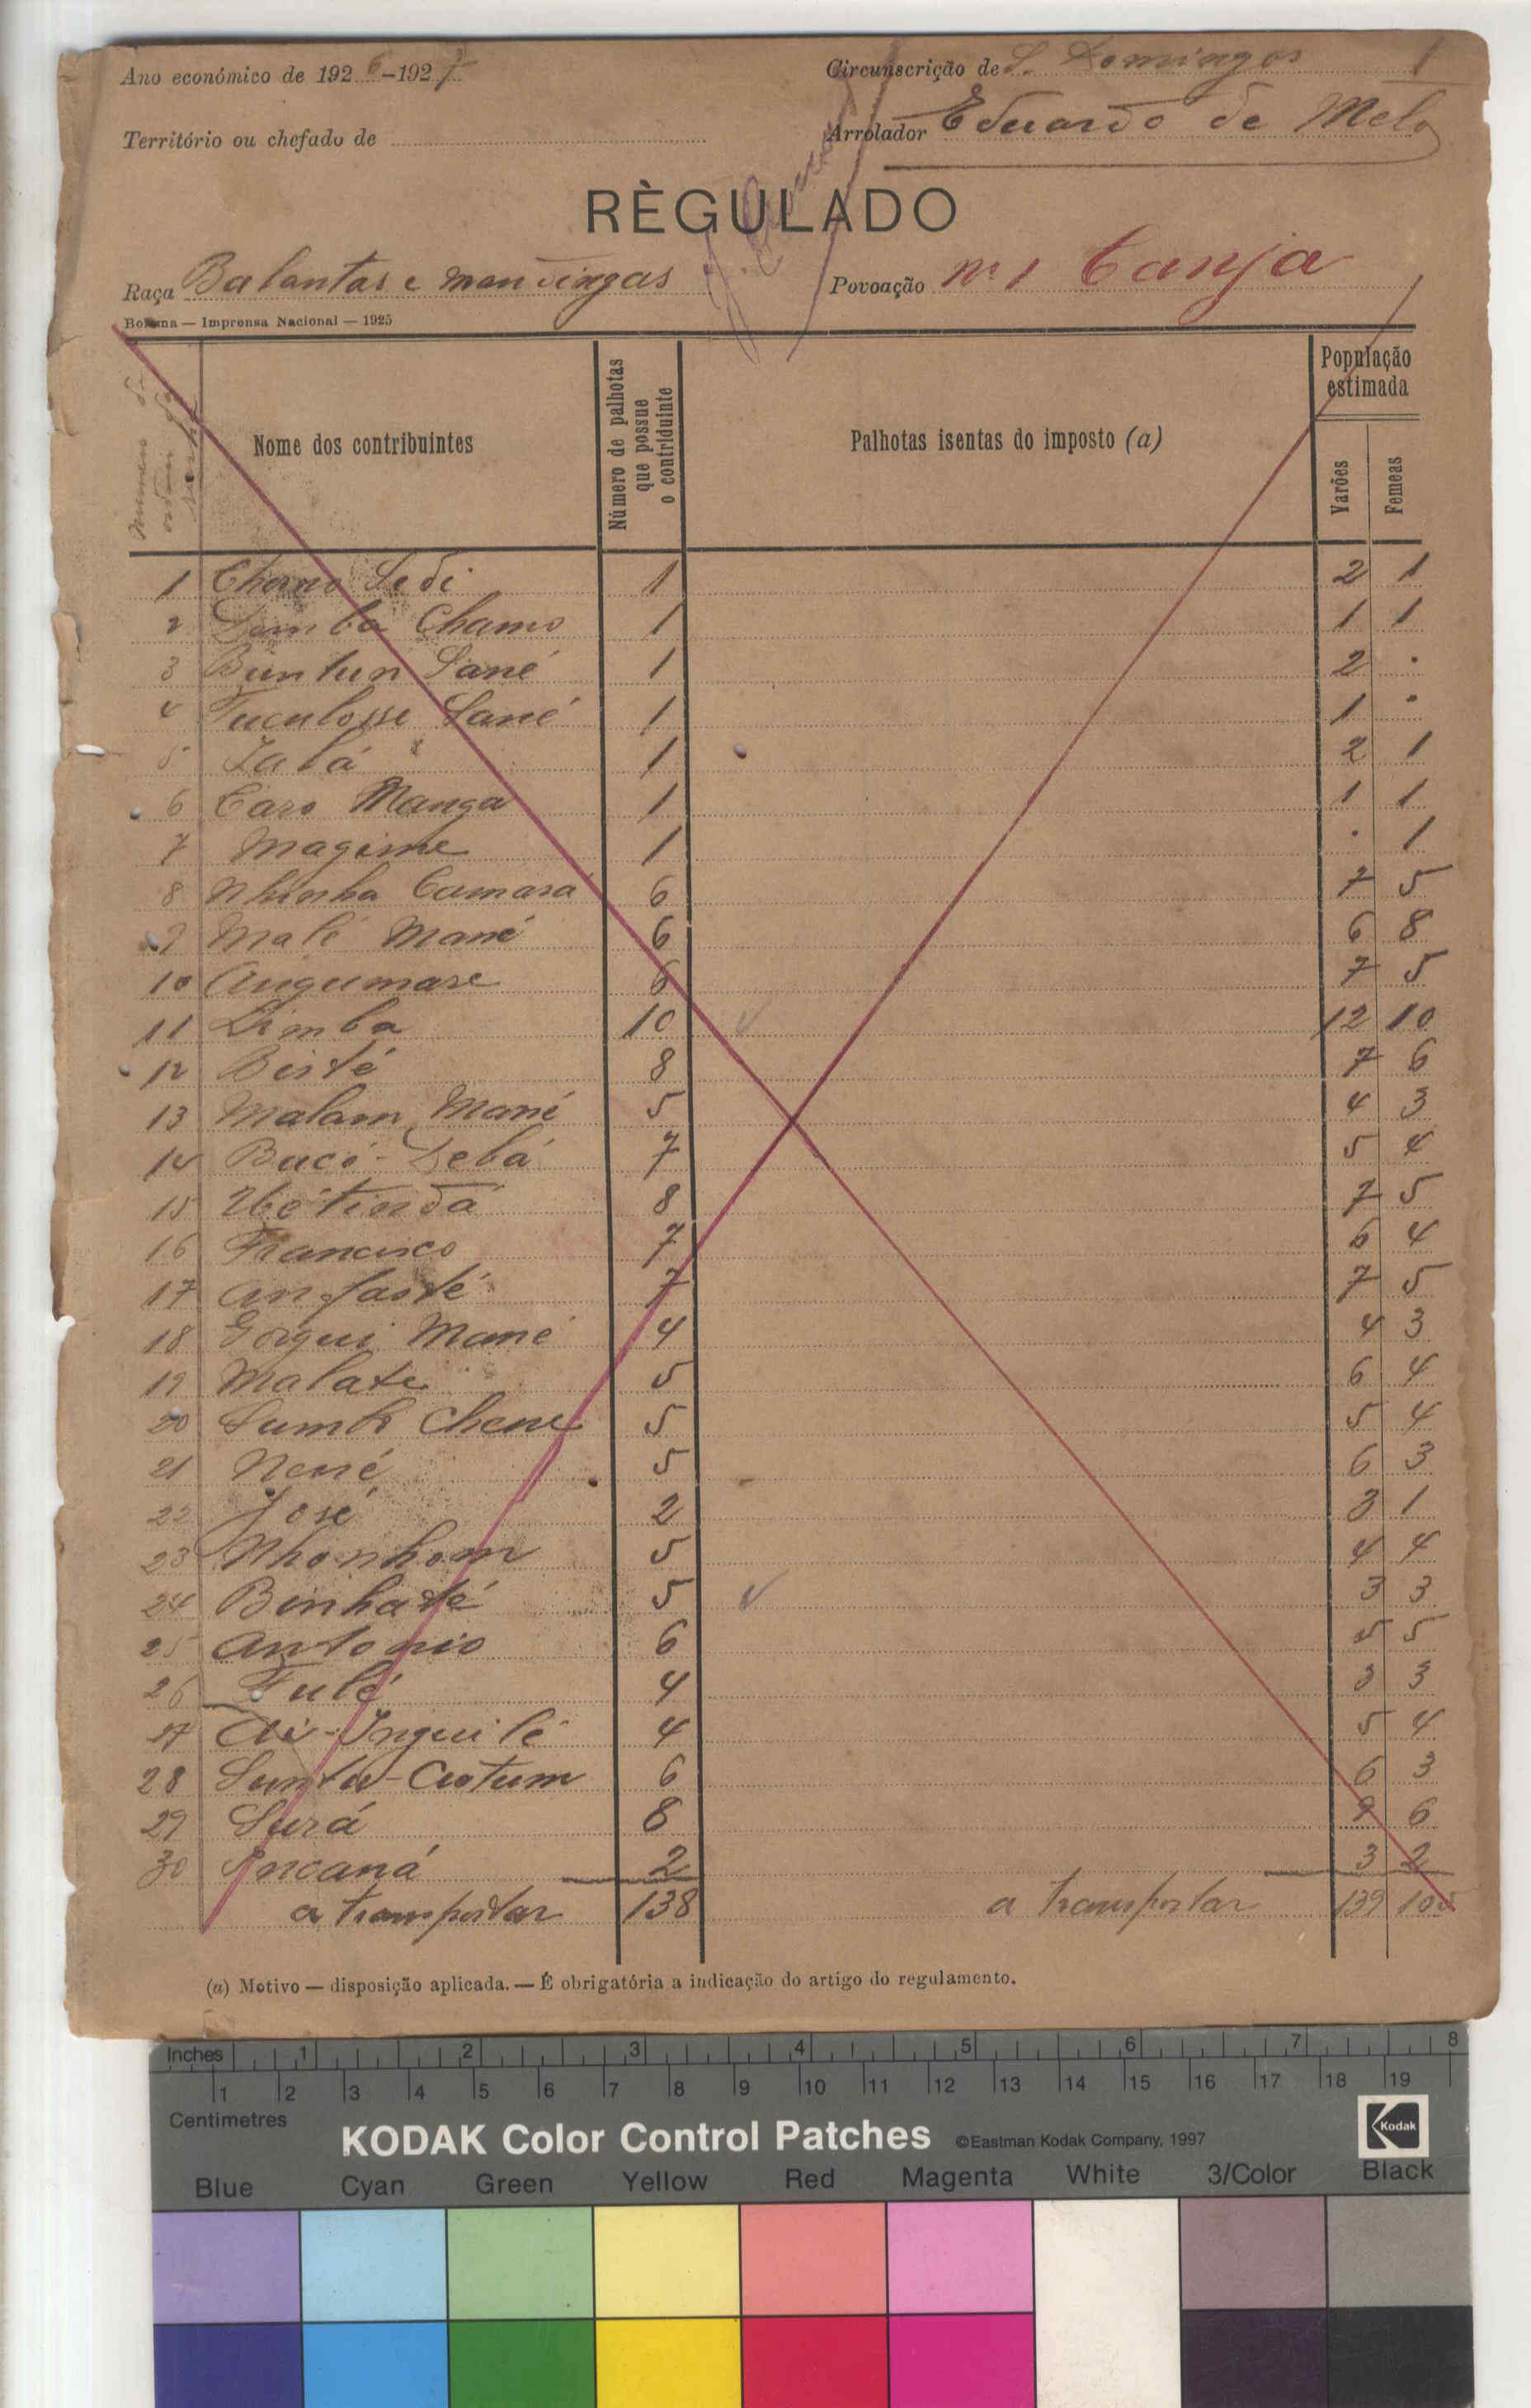 Ano económico de 1926-1927
Circunscrição de S. Domingos 1
Território ou chefado de
Arrolador Eduardo de Melo
RÈGULADO
Raça Balantas e mandingas
Povoação nº 1 Canja
Bolama — Imprensa Nacional — 1925
Numero de ordem da
Nome dos contribuintes
Número de palhotas que possue o contriduinte
Palhotas isentas do imposto (a)
População estimada
Varões Femeas
1 Cherno Sedi 1 2 1
2 Demba Chamo 1 1 1
3 Buntun Sané 1 2 .
4 Tuculosse Sané 1 1 .
5 1 2 1
6 Caro Manga 1 1 1
7 Magime 1 . 1
8 Nhinha Camara 6 7 5
9 Malé Mané 6 6 8
10 Augumare 6 7 5
11 Dimba 10 12 10
12 Bisté 8 7 6
13 Malam Mané 5 4 3
14 Bacó-Debá 7 5 4
15 8 7 5
16 Francisco 7 6 4
17 Anfasté 7 7 5
18 Gorgui Mané 4 4 3
19 Malate 5 6 4
20 5 5 4
21 Nené 5 6 3
22 José 2 3 1
23 Nhonhom 5 4 4
24 5 3 3
25 Antonio 6 5 5
26 Fulé 4 3 3
27 4 5 4
28 6 6 3
29 Surá 8 9 6
30 Incaná 2 3 2
a transportar 138 a transportar 139 105
(a) Motivo — disposição aplicada. — É obrigatória a indicação do artigo do regulamento.
Inches 1 2 3 4 5 6 7 8
1 2 3 4 5 6 7 8 9 10 11 12 13 14 15 16 17 18 19
Centimetres
KODAK Color Control Patches ©Eastman Kodak Company, 1997 Kodak
Blue Cyan Green Yellow Red Magenta White 3/Color Black